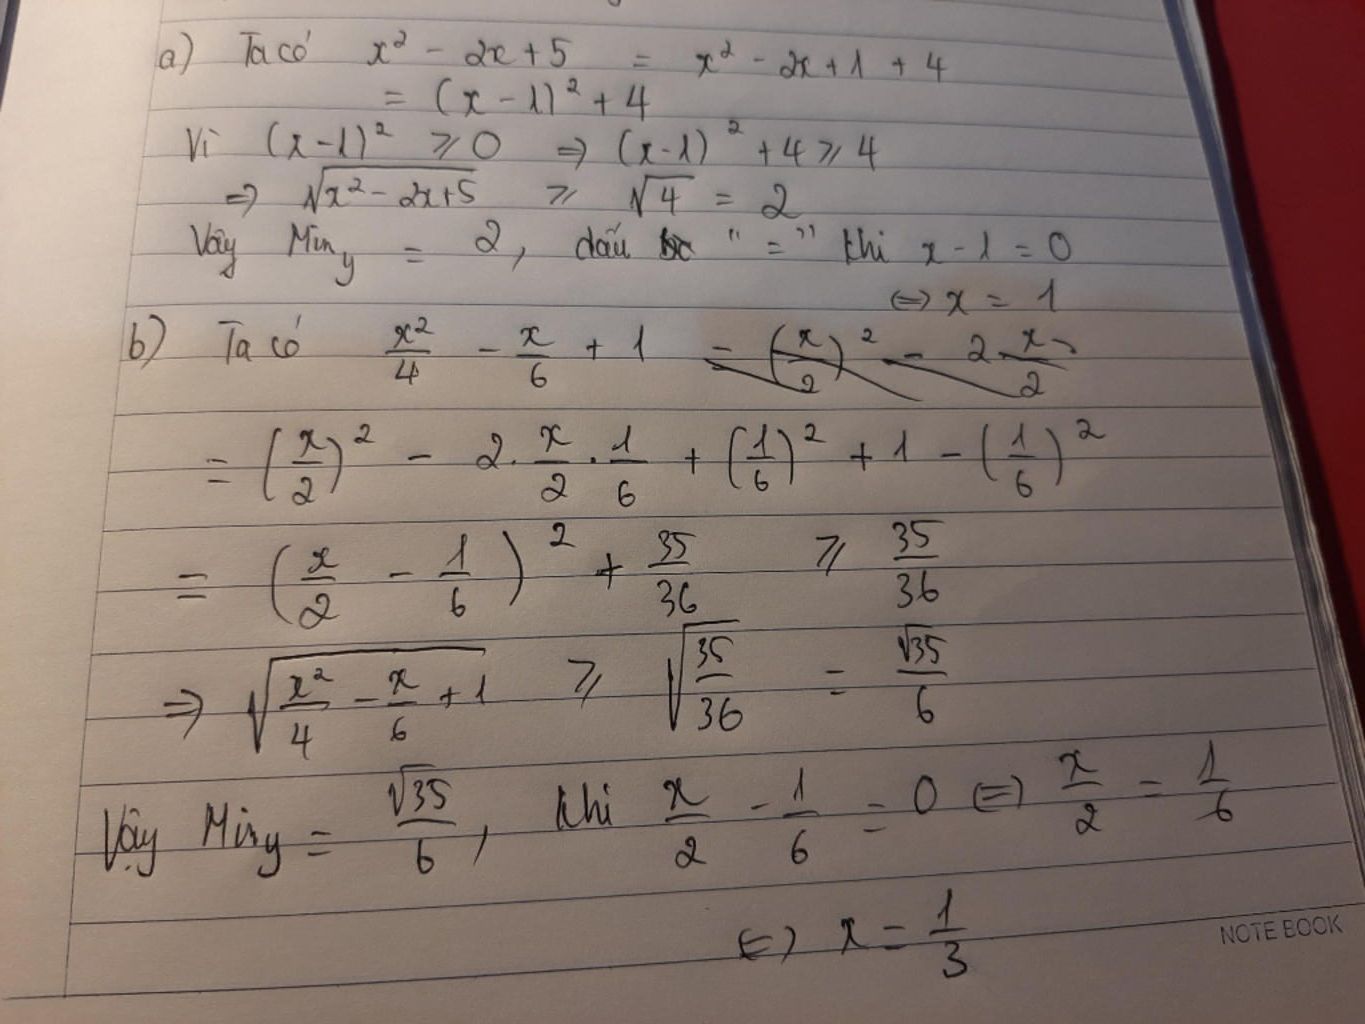 a) Ta có x² - 2x + 5 = x² - 2x + 1 + 4
= (x - 1)² + 4
Vì (x-1)² ⩾ 0 ⇒ (x-1)² + 4 ⩾ 4
⇒ √(x² - 2x+5) ⩾ √4 = 2
Vậy Min y = 2, dấu "=" khi x - 1 = 0
⇔ x = 1
b) Ta có x²/4 - x/6 + 1
= (x/2)² - 2. x/2 . 1/6 + (1/6)² + 1 - (1/6)²
= (x/2 - 1/6)² + 35/36 ⩾ 35/36
⇒ √(x²/4 - x/6 + 1) ⩾ √(35/36) = √35/6
Vậy Min y = √35/6, khi x/2 - 1/6 = 0 ⇔ x/2 = 1/6
⇔ x = 1/3
NOTE BOOK